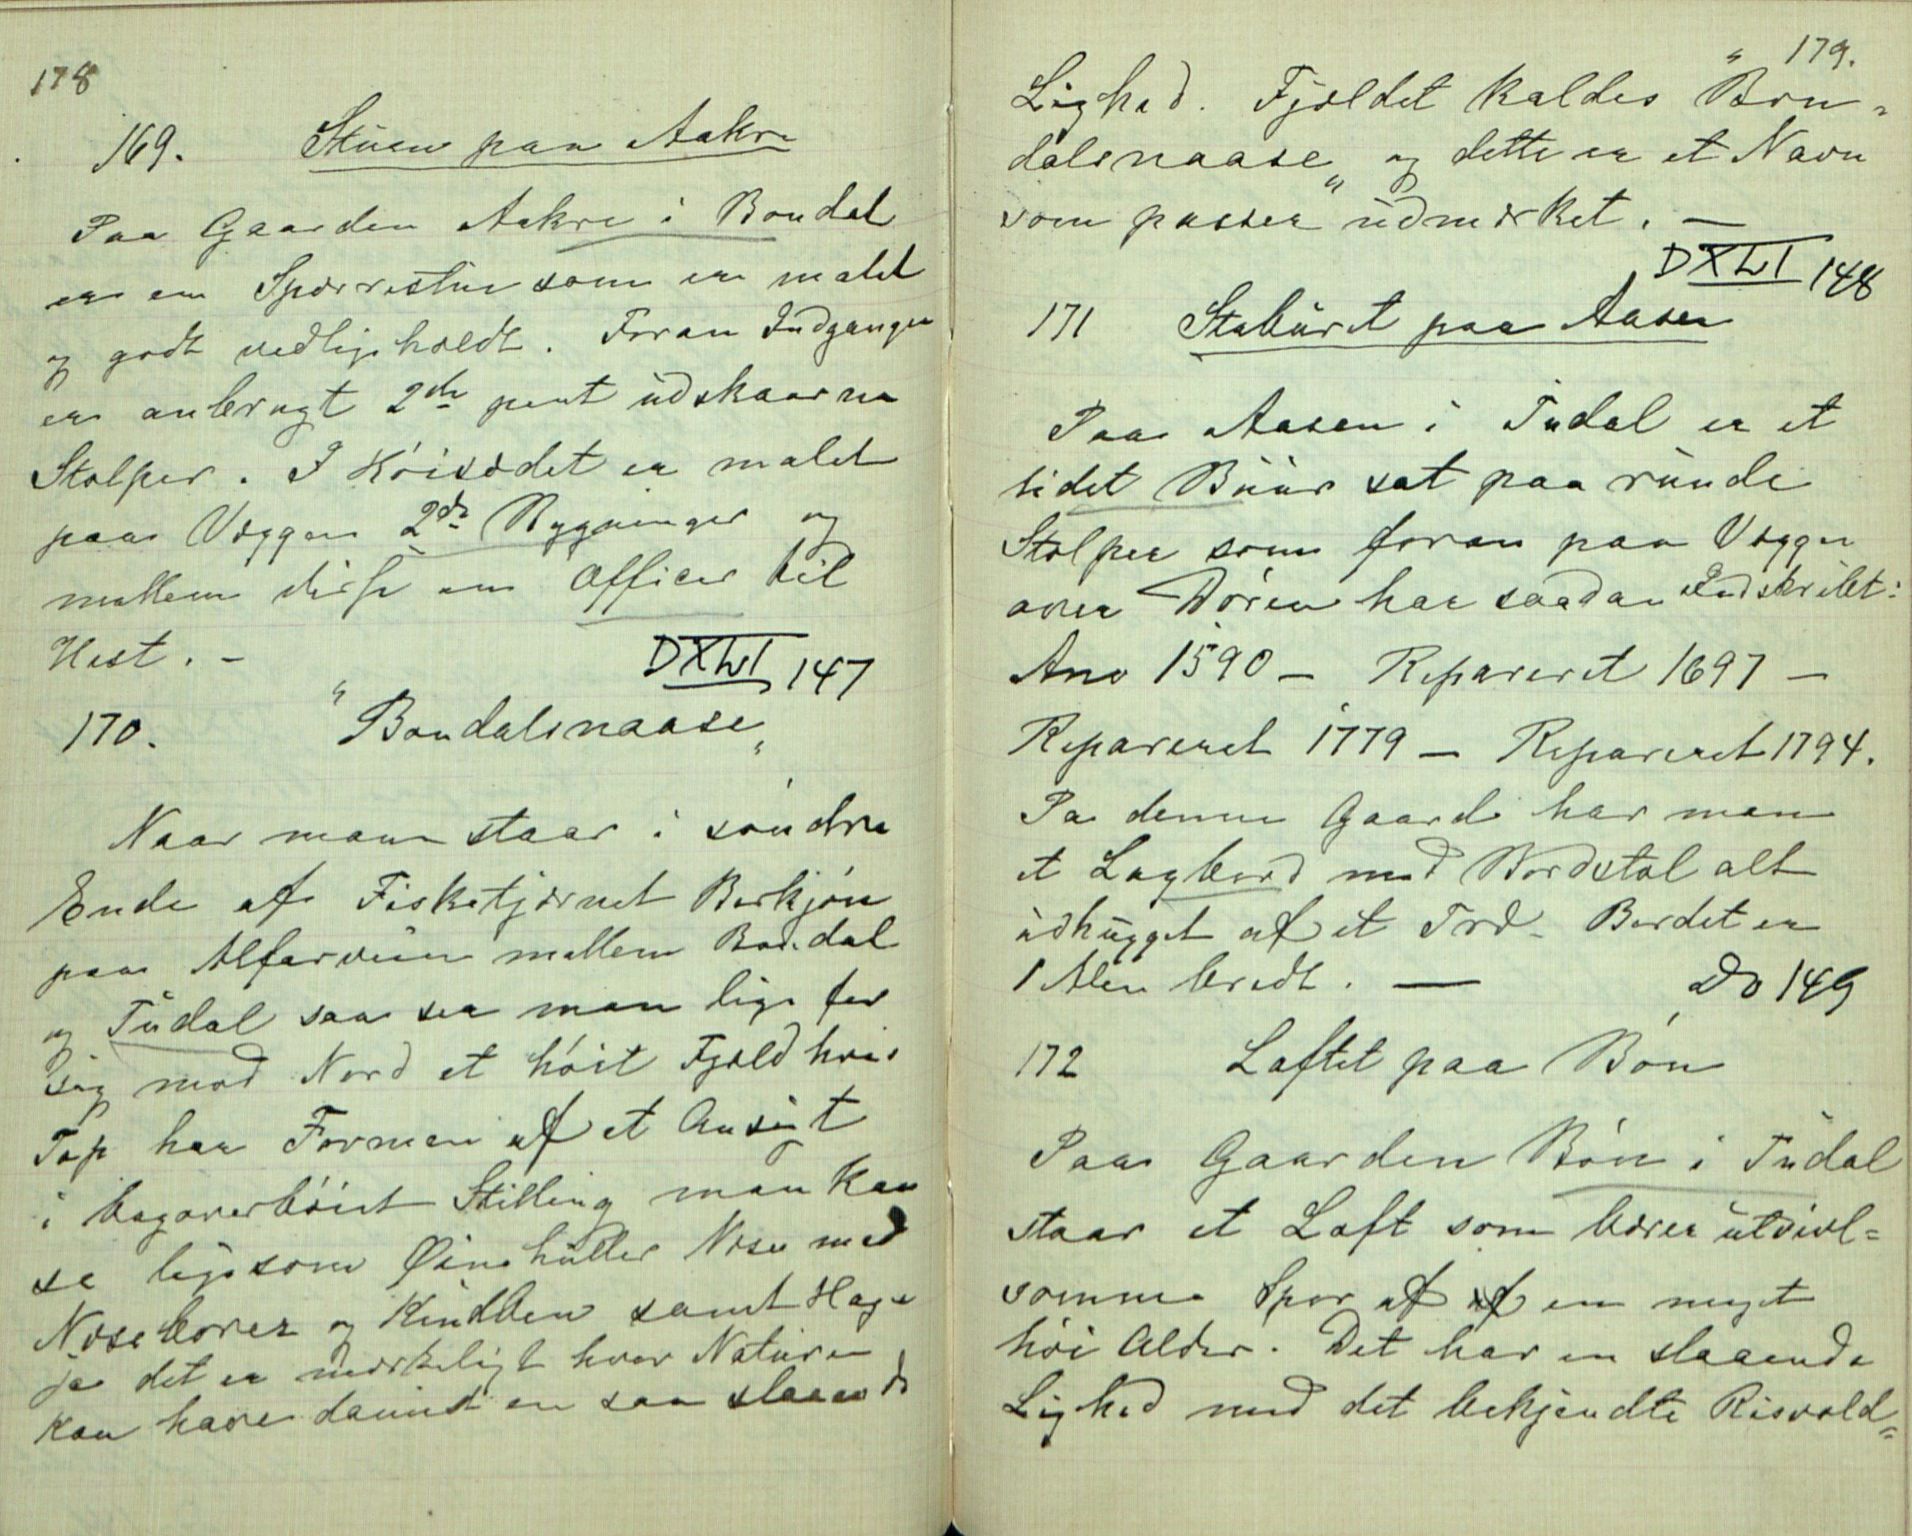 178
169. Stúen paa Aakre
Paa Gaarden Aakre i Bondal
er en Sperrestue som er malet
og godt vedligeholdt. Foran Indgangen
er anbragt 2de pent údskaarne
Stolper. I Höisædet er malet
paa Væggen 2de Bygninger og
mellem disse en Officer til
Hest. -
DXLVI 147
170. "Bondalsnaase"
Naar man staar i söndre
Ende af Fisketjærnet Berkjön
paa Alfarveien mellem Bondal
og Túdal saa ser man lige for
sig mod Nord et höit Fjeld hvis
Top har Formen af et Ansigt
i bagoverböiet Stilling man kan
se ligesom Øinehúller Næse med
Næseborer og Kindben samt Hage
ja det er merkeligt hvor Natúren
kan have dannet en saa slaaende
179.
Lighed. Fjeldet kaldes "Bon=
dalsnaase" og dette er et Navn
som passer údmerket. —
DXLVI 148
171 Stabúret paa Aasen
Paa Aasen i Túdal er et
lidet Búúr sat paa rúnde
Stolper som foran paa Væggen
over Dören har saadan Indskribt:
Ano 1590 — Repareret 1697 —
Repareret 1779 — Repareret 1794.
Pa denne Gaard har man
et Lagbord med Bordstol alt
údhúgget af et Træ. Bordet er
1 Alen bredt. —
Do 149
172 Loftet paa Bön
Paa Gaarden Bön i Túdal
staar et Loft som bærer útvivl=
somme Spor af af en meget
höi Alder. Det har en slaaende
Lighed med det bekjendte Risvold=